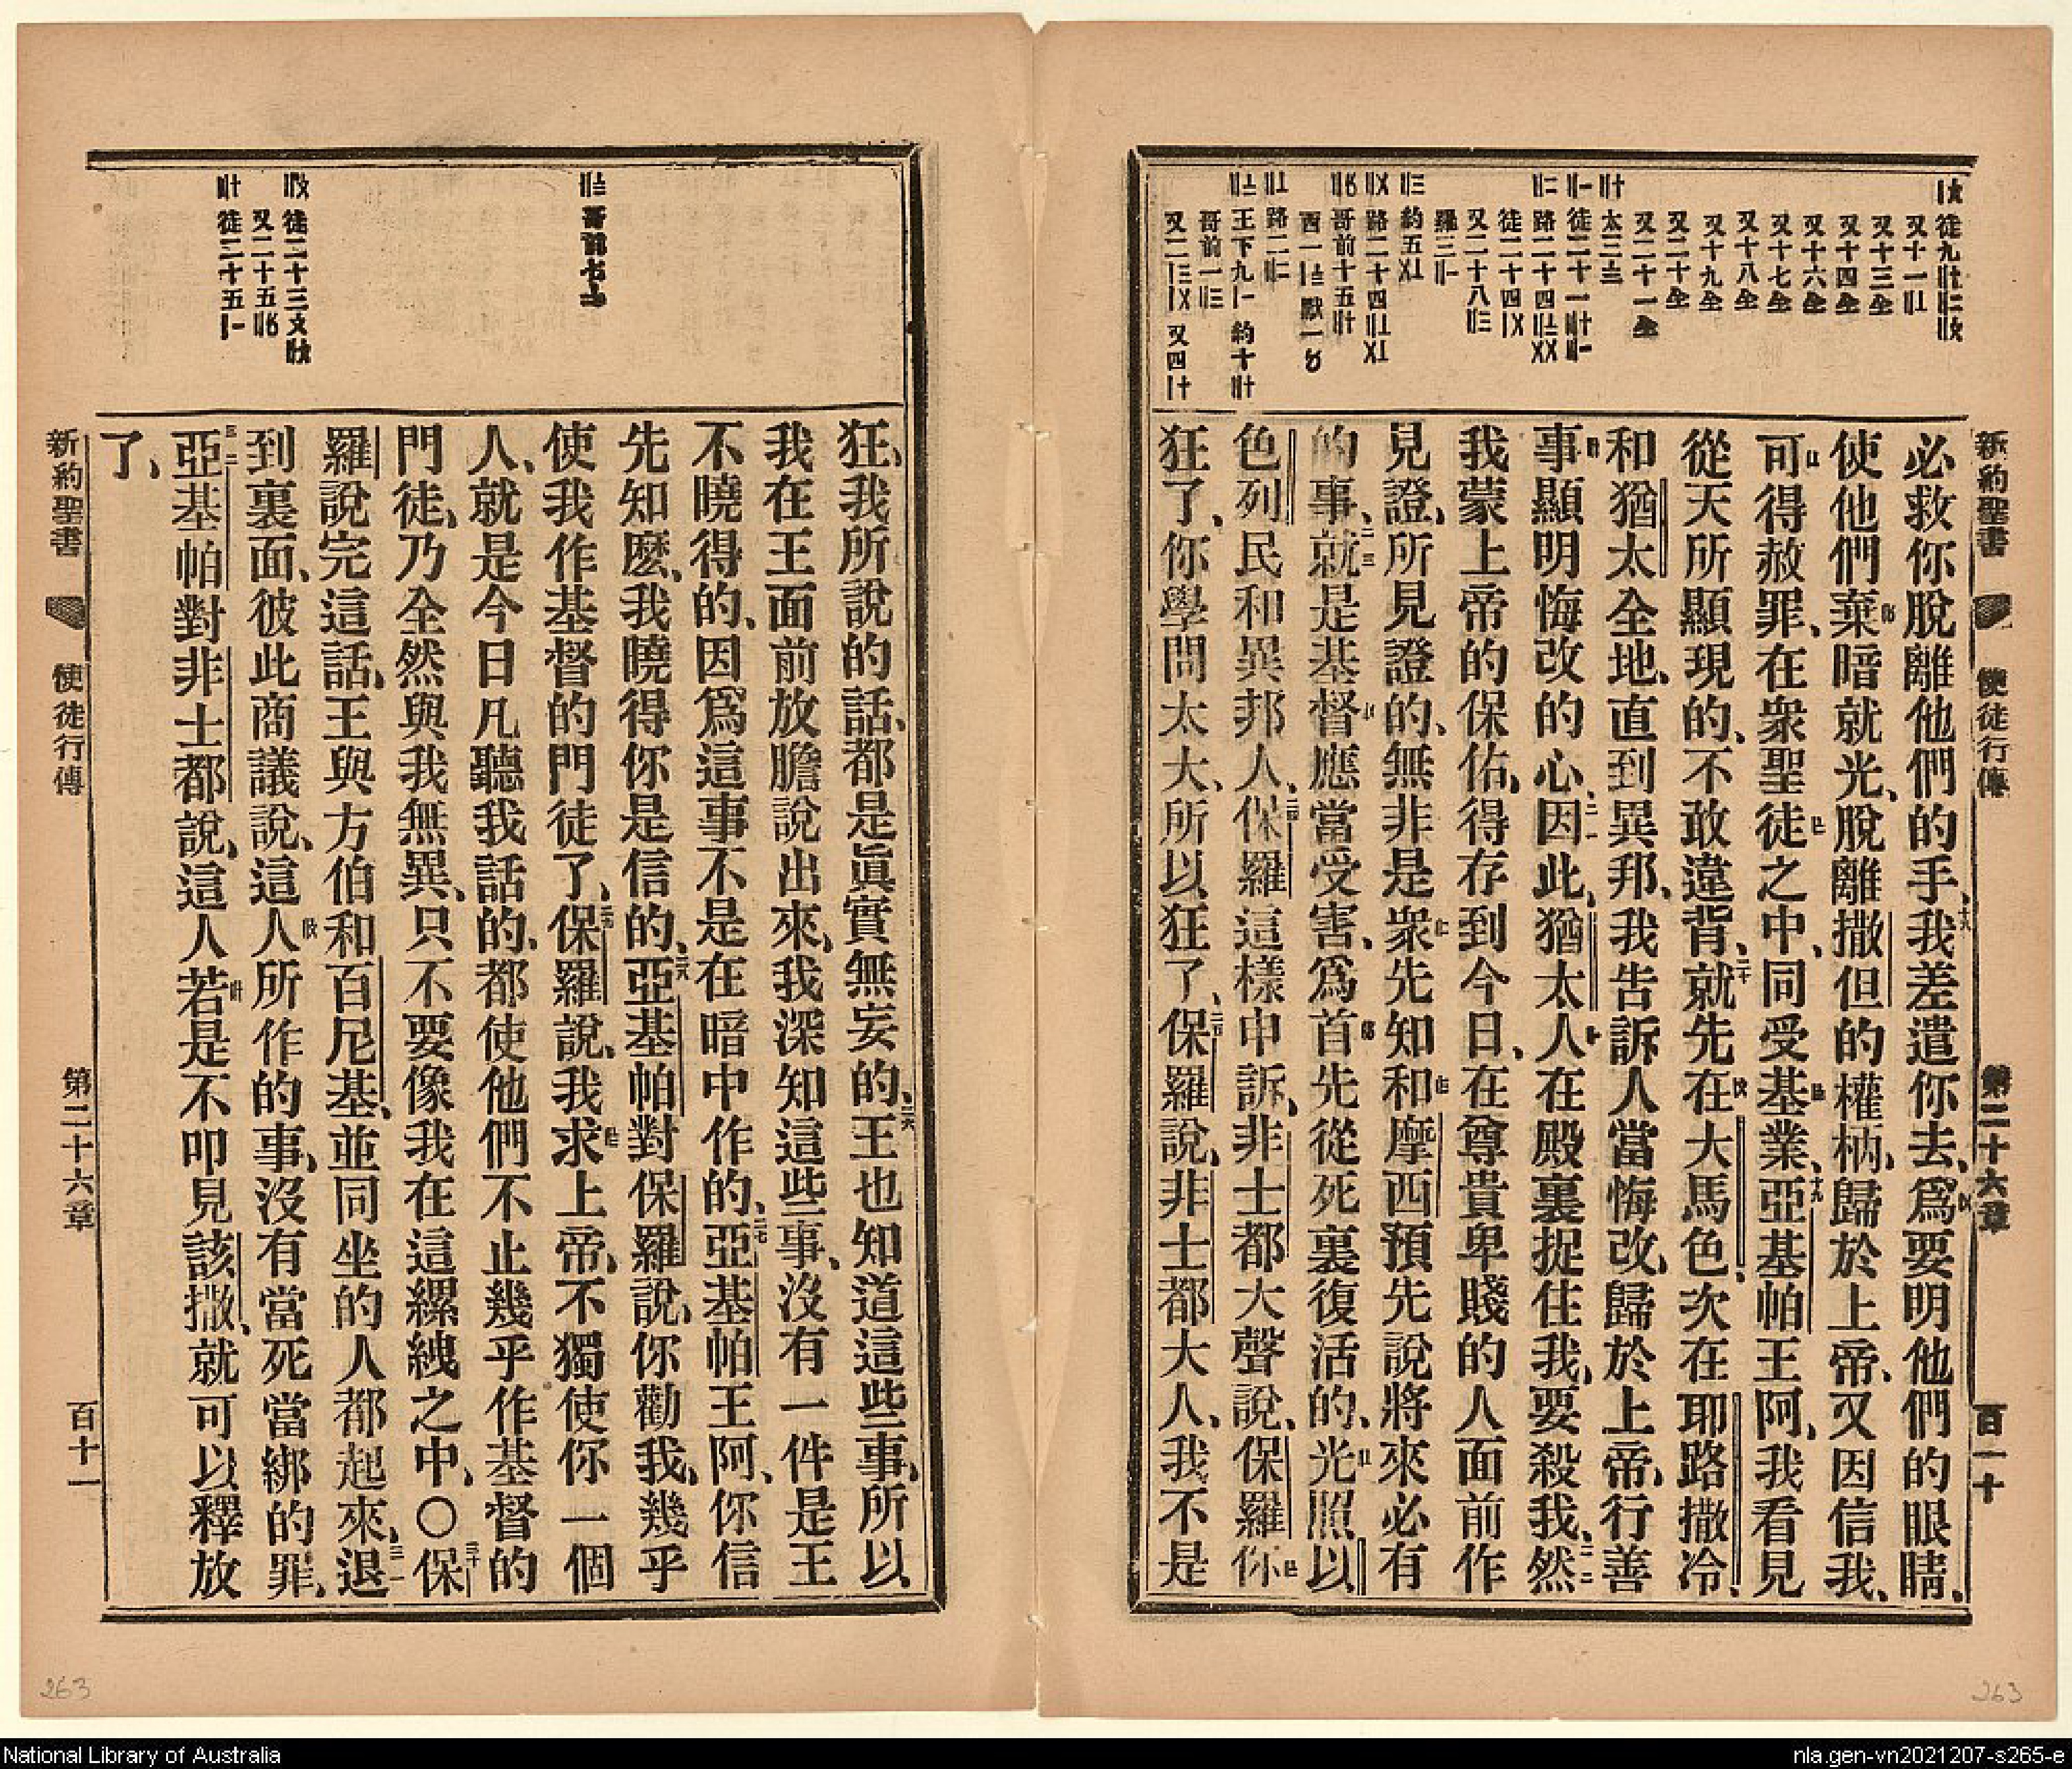 新約聖書 使徒行傳 第二十六章 百一十
必救你脫離他們的手、十八我差遣你去、爲要明他們的眼睛、
使他們棄暗就光、脫離撒但的權柄、歸於上帝、又因信我、
可得赦罪、在衆聖徒之中、同受基業、十九亞基帕王阿、我看見
從天所顯現的、不敢違背、二十就先在大馬色、次在耶路撒冷、
和猶太全地、直到異邦、我告訴人當悔改、歸於上帝、行善
事顯明悔改的心、二一因此、猶太人在殿裏捉住我、要殺我、二二然
我蒙上帝的保佑、得存到今日、在尊貴卑賤的人面前作
見證、所見證的、無非是衆先知和摩西預先說將來必有
的事、二三就是基督應當受害、爲首先從死裏復活的、光照以
色列民和異邦人、二四保羅這樣申訴、非士都大聲說、保羅你
狂了、你學問太大、所以狂了、二五保羅說、非士都大人、我不是
狂、我所說的話、都是眞實無妄的、二六王也知道這些事、所以
我在王面前放膽說出來、我深知這些事、沒有一件是王
不曉得的、因爲這事不是在暗中作的、二七亞基帕王阿、你信
先知麼、我曉得你是信的、二八亞基帕對保羅說、你勸我、幾乎
使我作基督的門徒了、二九保羅說、我求上帝、不獨使你一個
人、就是今日凡聽我話的、都使他們不止幾乎作基督的
門徒、乃全然與我無異、只不要像我在這縲絏之中、〇三十保
羅說完這話、王與方伯和百尼基、並同坐的人都起來、三一退
到裏面、彼此商議說、這人所作的事、沒有當死當綁的罪、
三二亞基帕對非士都說、這人若是不叩見該撒、就可以釋放
了、
新約聖書 使徒行傳 第二十六章 百十一
263
263
National Library of Australia
nla.gen-vn2021207-s265-e